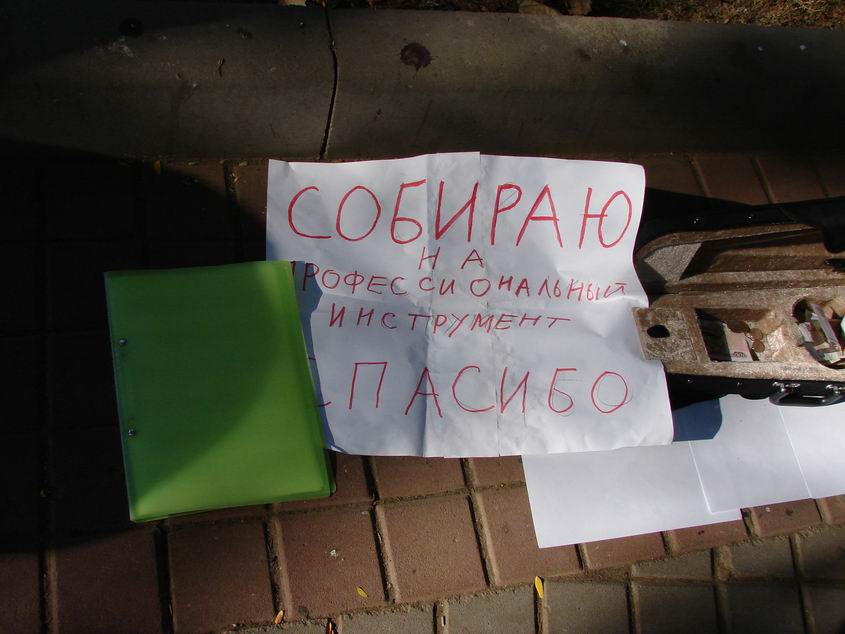 СОБИРАЮ
НА
ПРОФЕССИОНАЛЬНЫЙ
ИНСТРУМЕНТ
СПАСИБО